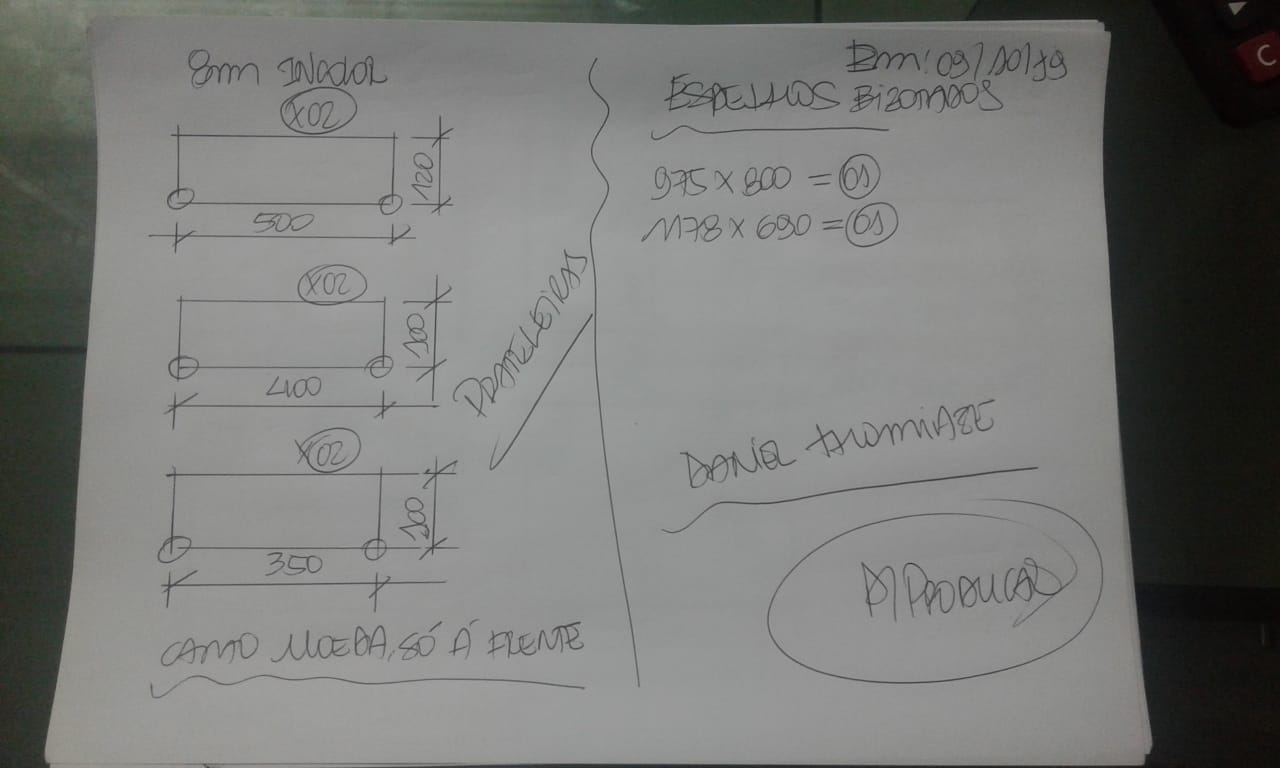 8mm INCOLOR
X02
120
500
X02
100
400
X02
100
350
PRATELEIRAS
CANTO MOEDA, SÓ Á FRENTE
Em: 09/10/19
ESPELHOS BIZOTADOS
975 X 800 = 01
1178 X 690 = 01
DANIEL
P/ PRODUÇÃO